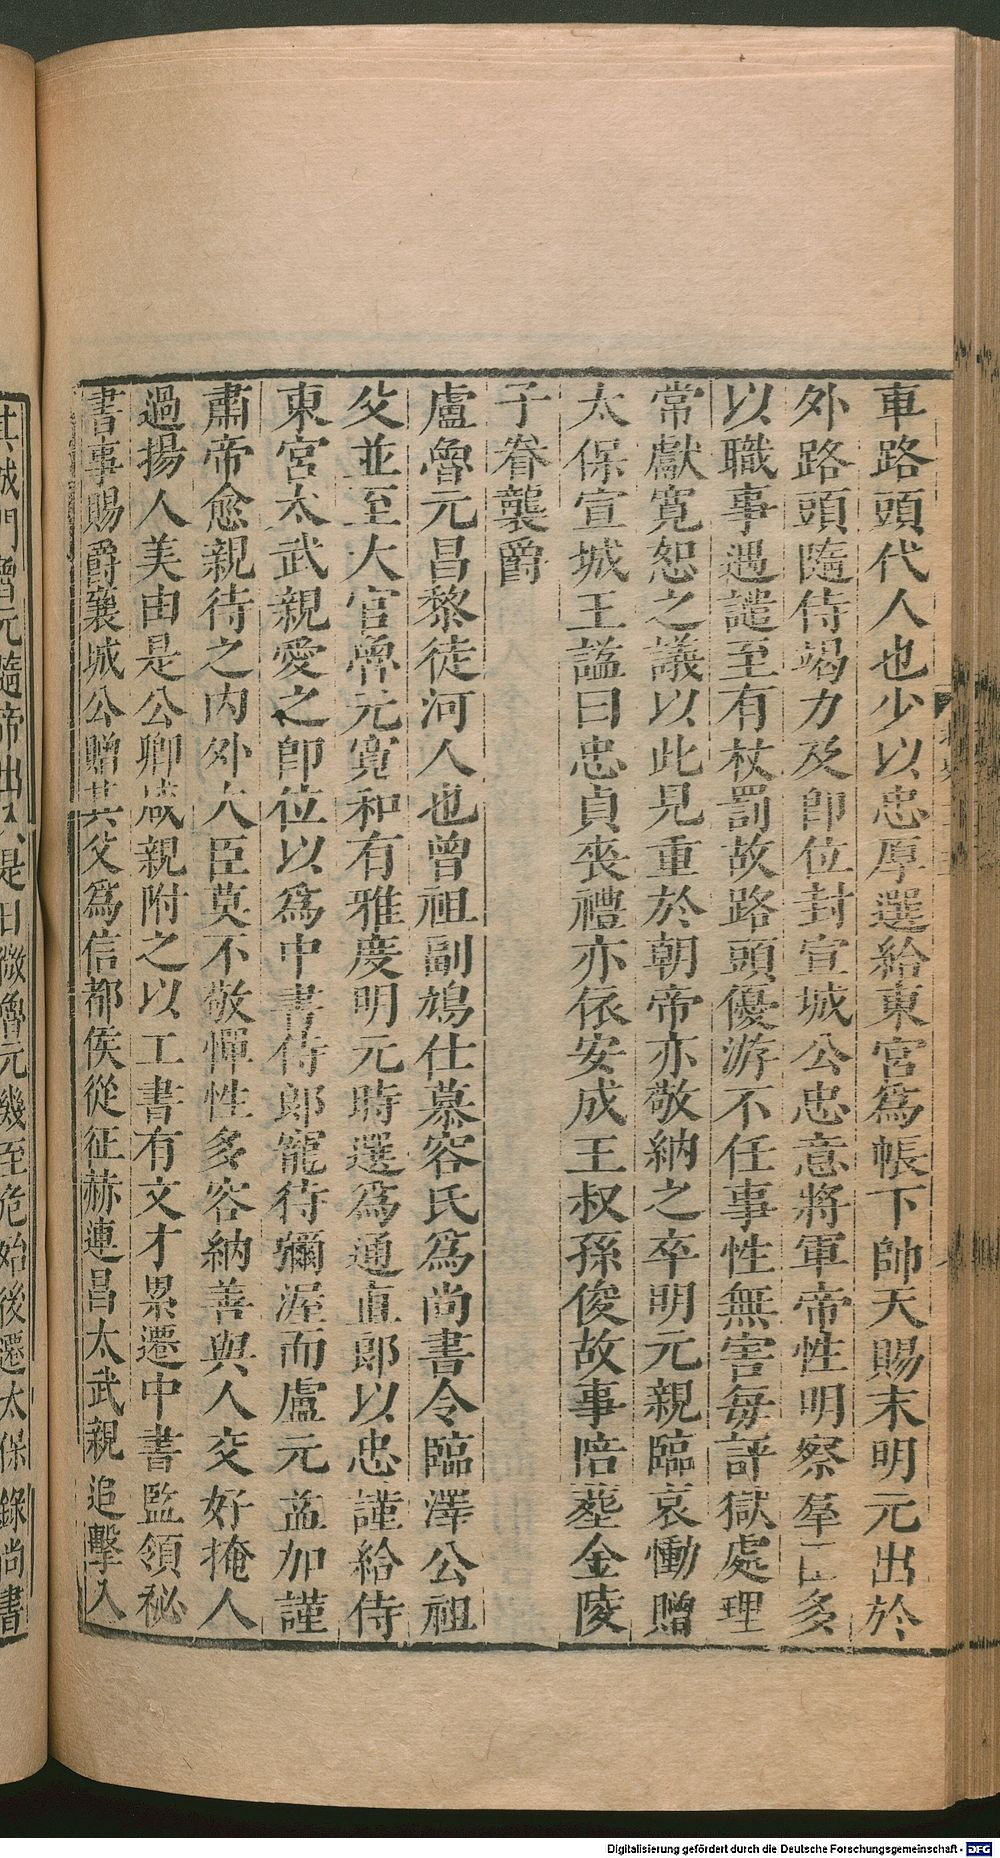 車路頭代人也少以忠厚選給東宮爲帳下帥天賜末明元出於
外路頭隨侍竭力及卽位封宣城公忠意將軍帝性明察羣臣多
以職事遇譴至有杖罰故路頭優游不任事性無害每評獄處理
常獻寬恕之議以此見重於朝帝亦敬納之卒明元親臨哀慟贈
太保宣城王謚曰忠貞喪禮亦依安成王叔孫俊故事陪葬金陵
子眷襲爵
盧魯元昌黎徒河人也曾祖副鳩仕慕容氏爲尚書令臨澤公祖
父並至大官魯元寬和有雅度明元時選爲通直郎以忠謹給侍
東宮太武親愛之卽位以爲中書侍郎寵待彌渥而盧元益加謹
肅帝愈親待之內外大臣莫不敬憚性多容納善與人交好掩人
過揚人美由是公卿咸親附之以工書有文才累遷中書監領秘
書事賜爵襄城公贈其父爲信都侯從征赫連昌太武親追擊入
其城門魯元隨帝出入是日微魯元幾至危殆後遷太保錄尚書
Digitalisierung gefördert durch die Deutsche Forschungsgemeinschaft - DFG